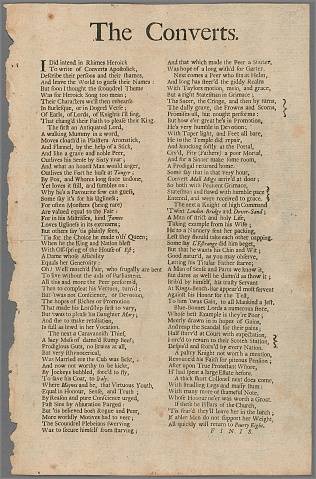 The Converts.
I Did intend in Rhimes Heroick
To write of Converts Apostolick,
Describe their persons and their shames,
And leave the World to guess their Names:
But soon I thought the scoundrel Theme
Was for Heroick Song too mean;
Their Characters we'll then rehearse
In Burlesque, or in Dogrel Verse;
Of Earls, of Lords, of Knights I'll sing,
That chang'd their Faith to please their King.
The first an Antiquated Lord,
A walking Mummy in a word,
Moves cloath'd in Plaisters Aromatick,
And Flannel, by the help of a Stick,
And like a grave and noble Peer,
Outlives his Sense by Sixty year;
And what an honest Man would anger,
Outlives the Fort he built at Tangier;
By Pox, and Whores long since undone,
Yet loves it still, and fumbles on:
Why he's a Favourite few can guess,
Some say it's for his Ugliness;
For often Monsters (being rare)
Are valued equal to the Fair:
For in his Mistresses, kind
Loves Ugliness in its extreams;
But others say 'tis plainly seen,
'Tis for the Choice he made o'th' Queen;
When he the King and Nation blest
With Off-spring of the House of
A Dame whose Affability
Equals her Generosity:
Oh! Well match'd Pair, who frugally are bent
To live without the aids of Parliament,
All this and more the Peer perform'd,
Then to compleat his Vertues, turn'd;
But 'twas not Conscience, or Devotion,
The hopes of Riches or Promotion
That made his Lordship first to vary,
But 'twas to please his Daughter
And she to make retaliation,
Is full as lewd in her Vocation.
The next a Caravanish Thief,
A lazy Mass of damn'd Rump Beef;
Prodigious Guts, no Brains at all,
But very Rhinocerical,
Was Married ere the Cub was lick't,
And now not worthy to be kickt;
By Jockeys bubbled, forc'd to fly,
To save his Coat, to Italy.
Where Haynes and he, that Virtuous Youth,
Equal in Honour, Sense, and Truth;
By Reason and pure Conscience urged,
Past Sins by Abjuration Purged:
But 'tis believed both Rogue and Peer,
More worldly Motives had to veer;
The Scoundrel Plebeians swerving
Was to secure himself from starving;
And that which made the Peer a Starter,
Was hope of a long wish'd for Garter.
Next comes a Peer who sits at Helm,
And long has steer'd the giddy Realm
With Taylors motion, mein, and grace,
But a right Statesman in Grimace;
The Sneer, the Cringe, and then by turns,
The dully grave, the Frowns and Scorns,
Promises all, but nought performs:
But how e'er great he's in Promotion,
He's very humble in Devotion;
With Taper light, and Feet all bare,
He to the Temple did repair,
And knocking softly at the Portal,
Cry'd, Pity (Fathers) a poor Mortal,
And for a Sinner make some room,
A Prodigal returned home.
Some say that in that very hour,
Convert Moll Megs arriv'd at door;
So both with Penitent Grimace,
Statesman and Bawd with humble pace
Entered, and were received to grace.
The next a Knight of high Command
'Twixt London Bridge and Dover-Sand;
A Man of strict and holy Life,
Taking example from his Wife;
He to a Nunnery sent her packing,
Lest they should take each other napping.
Some say L'Estrange did him beget,
But that he wants his Chin and Wit;
Good natur'd, as you may observe,
Letting his Titular Father starve;
A Man of Sense and Parts we know it,
But dares as well be damn'd as show it;
Brib'd by himself, his trusty Servant
At Kings-Bench-Bar appear'd most fervent
Against his Honor for the Test,
To him 'twas Gain, to all Mankind a Jest.
Blue-Bonnet Lords a numerous store,
Whose best Example is they're Poor;
Meerly drawn in in hopes of Gains,
And reap the Scandal for their pains;
Half starv'd at Court with expectation,
Forc'd to return to their Scotch Station,
Despis'd and Scorn'd by every Nation.
A paltry Knight not worth a mention,
Renounc'd his Faith for piteous Pension;
After upon True Protestant Whores
H'had spent a large Estate before.
A thick short Collonel next does come,
With stradling Legs and massy Bum;
With many more of shameful Note,
Whose Honour ne'er was worth a Groat.
If these be Pillars of the Church,
'Tis fear'd they'll leave her in the lurch;
If abler Men do not support her Weight,
All quickly will return to Fourty Eight.
F I N I S.